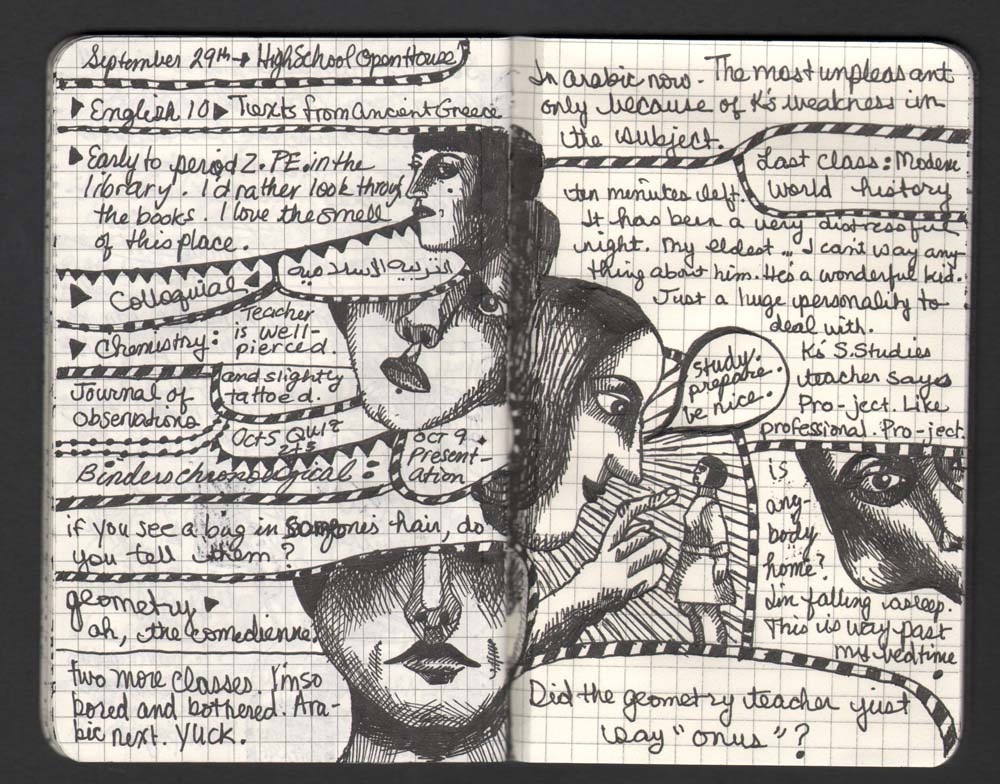 September 29th → High School Open House
▶ English 10 ▶ Texts from Ancient Greece
▶ Early to period 2. PE in the
library. I'd rather look throug
the books. I love the smell
of this place.
▶ Colloquial
التربية الإسلامية
▶ Chemistry:
Teacher
is well-
pierced.
and slightly
tattoed.
Journal of
Observations
Oct 5 Quiz
2+3
Oct 9.
Present-
ation
Binders chronological:
if you see a bug in someone's hair, do
you tell them?
geometry ▶
ah, the comedienne.
Two more classes. I'm so
bored and bothered. Ara-
bic next. Yuck.
In arabic now. The most unpleasant
only because of K's weakness in
the subject.
Last class: Modern
World history
ten minutes left.
It has been a very distressful
night. My eldest ... I can't say any-
thing about him. He's a wonderful kid.
Just a huge personality to
deal with.
K's S.Studies
teacher says
Pro-ject. Like
professional. Pro-ject.
Study.
prepare.
be nice.
is
any-
body
home?
I'm falling asleep.
This is way past
my bedtime.
Did the geometry teacher just
say "onus"?